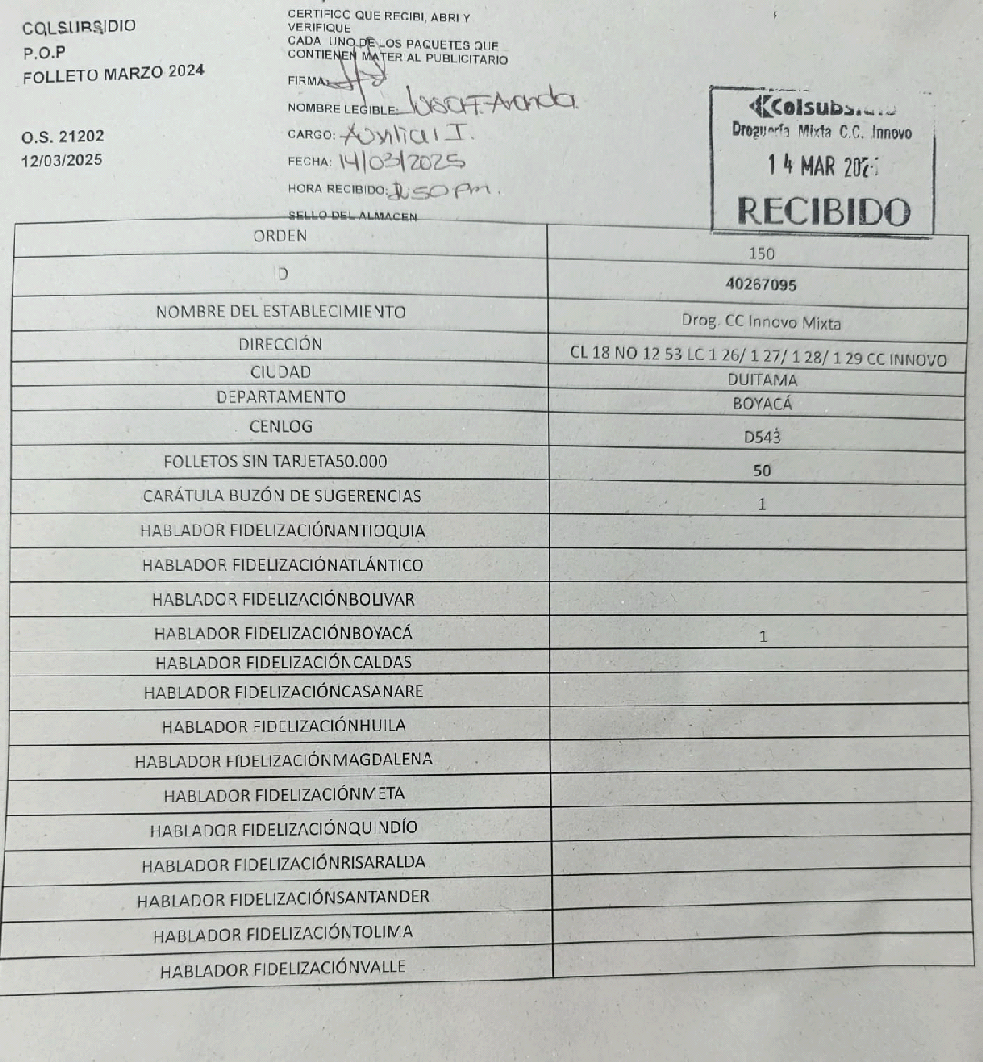 COLSUBSIDIO
P.O.P
FOLLETO MARZO 2024
O.S. 21202
12/03/2025
CERTIFICO QUE RECIBI, ABRI Y
VERIFIQUE
CADA UNO DE LOS PAQUETES QUE
CONTIENEN MATERIAL PUBLICITARIO
FIRMA:
NOMBRE LEGIBLE: F. Aranda
CARGO: Auxiliar I.
FECHA: 14/03/2025
HORA RECIBIDO: 50 pm.
SELLO DEL ALMACEN
Colsubsidio
Droguería Mixta C.C. Innovo
14 MAR
RECIBIDO
ORDEN 150
ID 40267095
NOMBRE DEL ESTABLECIMIENTO Drog. CC Innovo Mixta
DIRECCIÓN CL 18 NO 12 53 LC 1 26/ 1 27/ 1 28/ 1 29 CC INNOVO
CIUDAD DUITAMA
DEPARTAMENTO BOYACÁ
CENLOG D543
FOLLETOS SIN TARJETA50.000 50
CARÁTULA BUZÓN DE SUGERENCIAS 1
HABLADOR FIDELIZACIÓNANTIOQUIA
HABLADOR FIDELIZACIÓNATLÁNTICO
HABLADOR FIDELIZACIÓNBOLIVAR
HABLADOR FIDELIZACIÓNBOYACÁ 1
HABLADOR FIDELIZACIÓNCALDAS
HABLADOR FIDELIZACIÓNCASANARE
HABLADOR FIDELIZACIÓNHUILA
HABLADOR FIDELIZACIÓNMAGDALENA
HABLADOR FIDELIZACIÓNMETA
HABLADOR FIDELIZACIÓNQUINDÍO
HABLADOR FIDELIZACIÓNRISARALDA
HABLADOR FIDELIZACIÓNSANTANDER
HABLADOR FIDELIZACIÓNTOLIMA
HABLADOR FIDELIZACIÓNVALLE